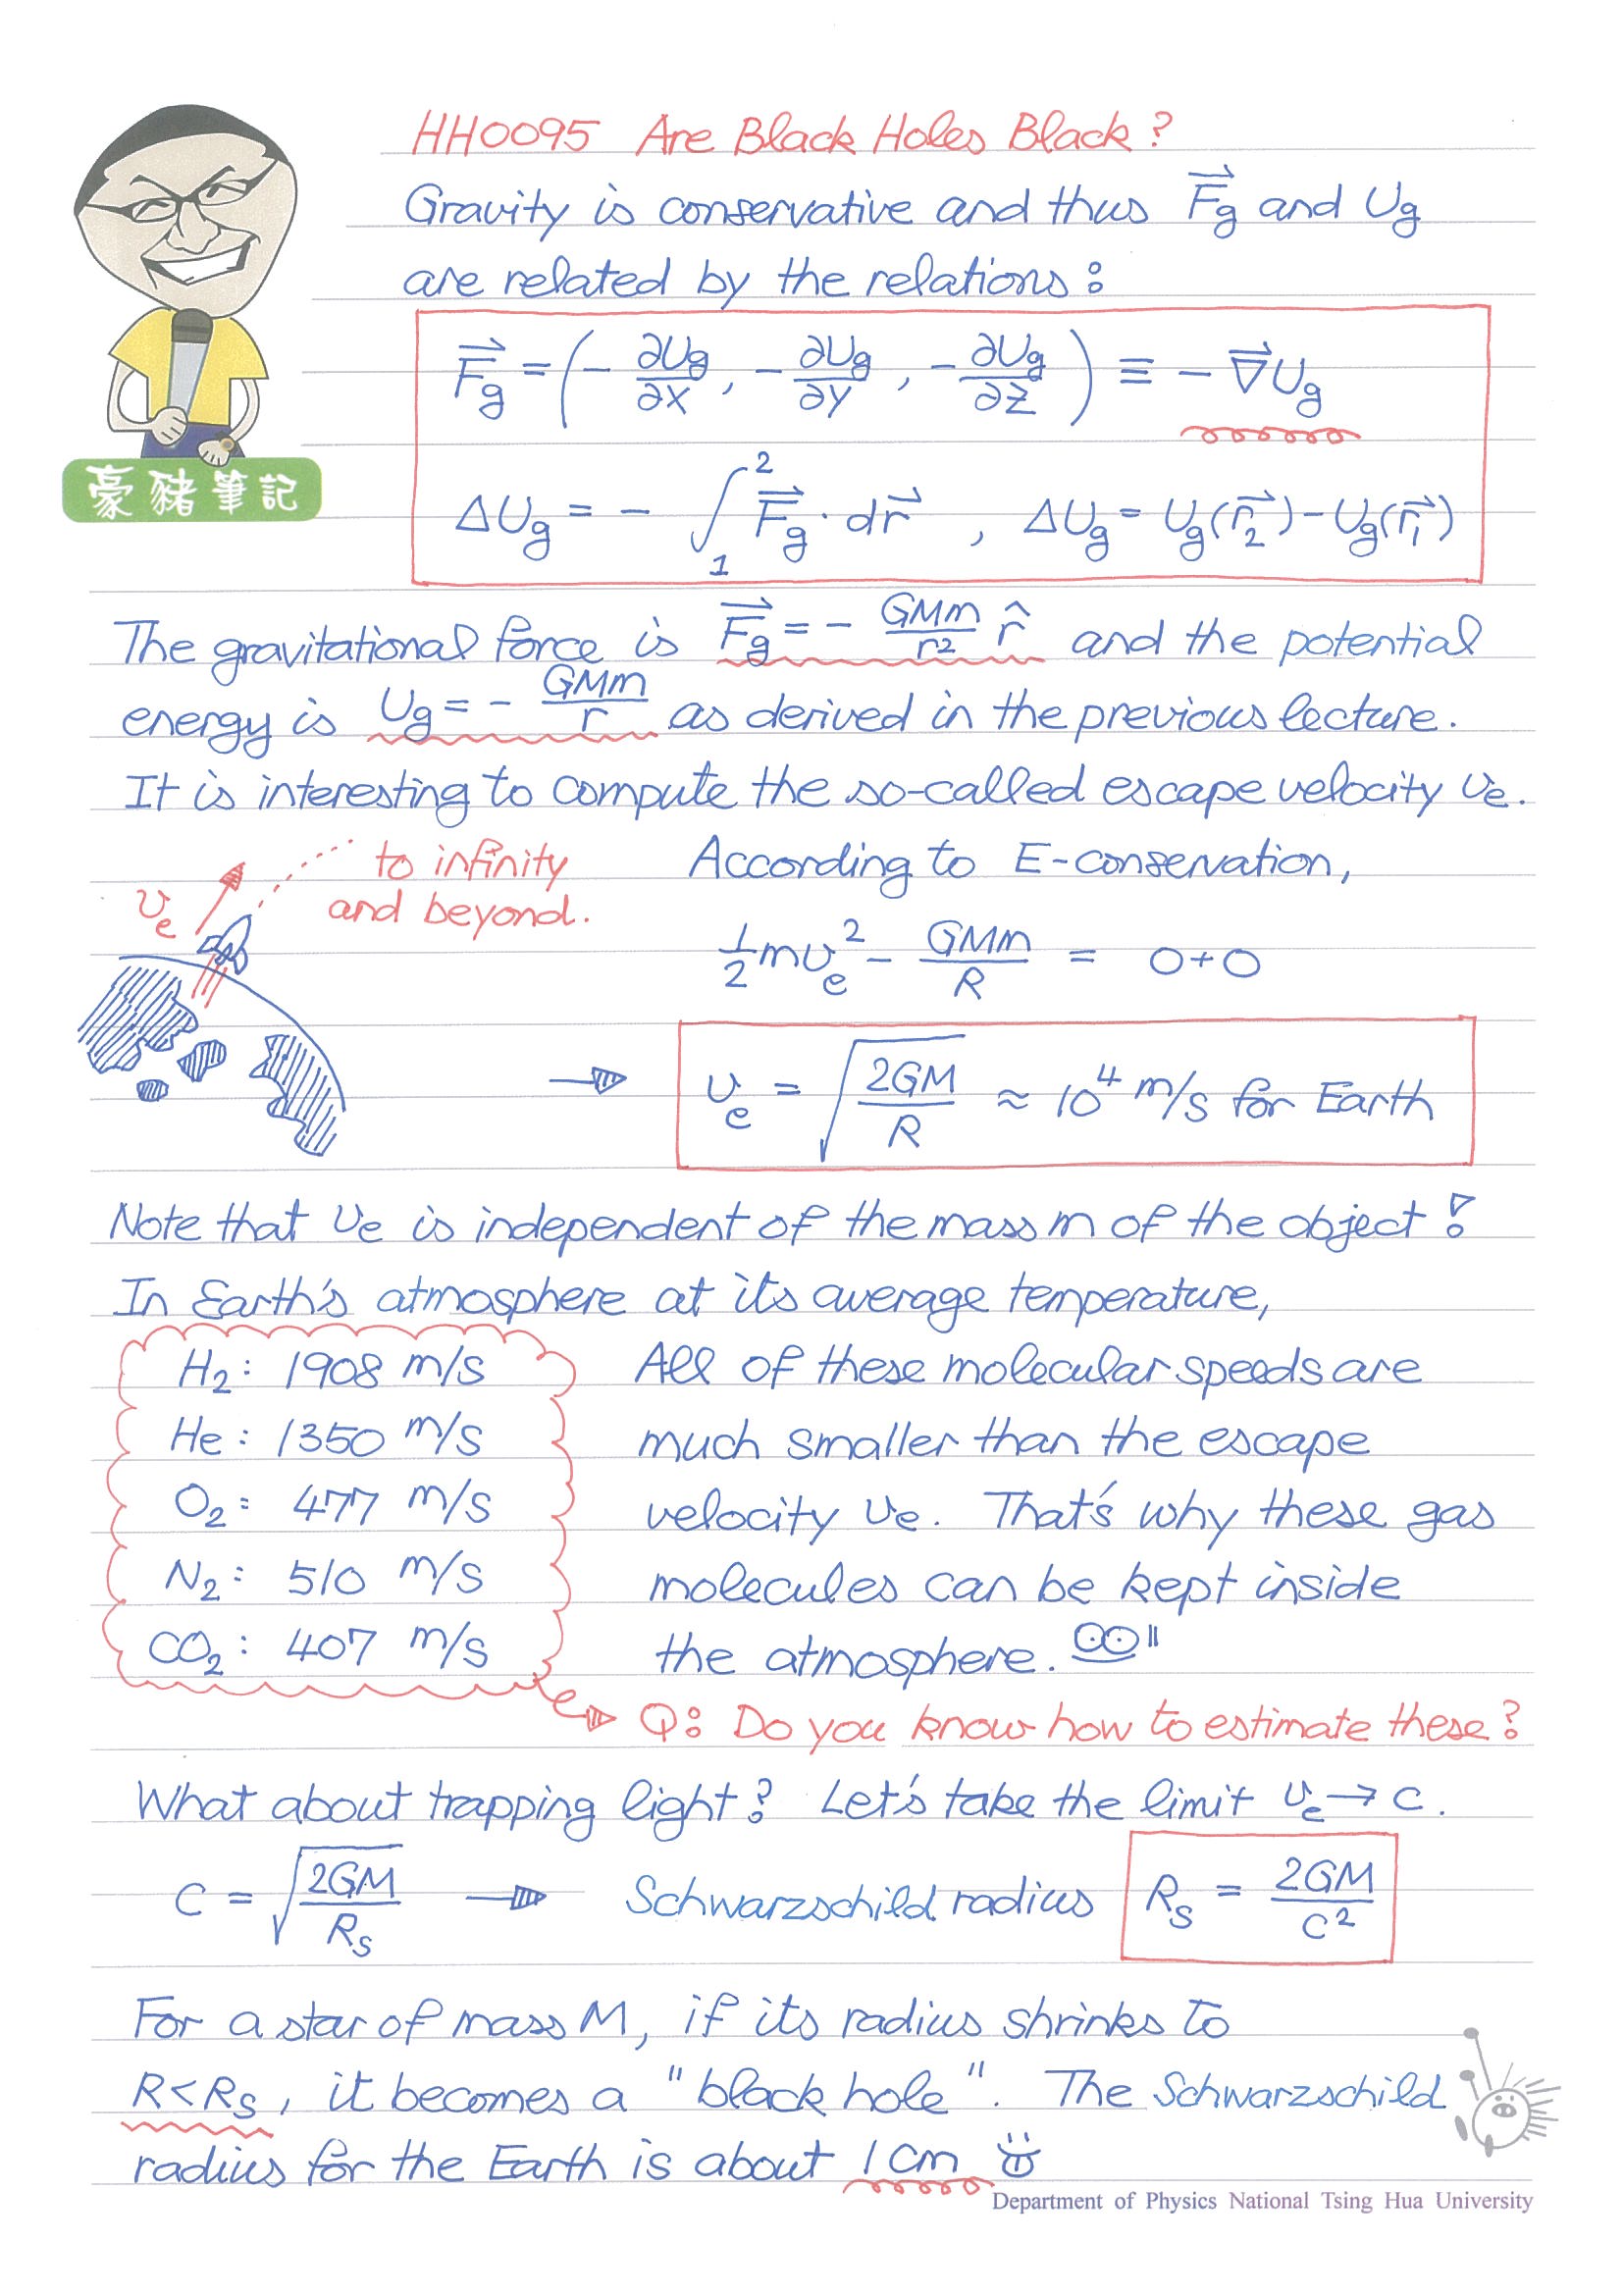 HH0095 Are Black Holes Black?
Gravity is conservative and thus F⃗g and Ug
are related by the relations:
F⃗g = (- ∂Ug/∂x, - ∂Ug/∂y, - ∂Ug/∂z) ≡ - ∇⃗Ug
豪豬筆記
ΔUg = - ∫₁² F⃗g · dr⃗ , ΔUg = Ug(r⃗₂) - Ug(r⃗₁)
The gravitational force is F⃗g = - GMm/r² r̂ and the potential
energy is Ug = - GMm/r as derived in the previous lecture.
It is interesting to compute the so-called escape velocity ve.
ve
to infinity
and beyond.
According to E-conservation,
½mve² - GMm/R = 0+0
→ ve = √(2GM/R) ≈ 10⁴ m/s for Earth
Note that ve is independent of the mass m of the object!
In Earth's atmosphere at its average temperature,
H₂: 1908 m/s
He: 1350 m/s
O₂: 477 m/s
N₂: 510 m/s
CO₂: 407 m/s
All of these molecular speeds are
much smaller than the escape
velocity ve. That's why these gas
molecules can be kept inside
the atmosphere.
Q: Do you know how to estimate these?
What about trapping light? Let's take the limit ve → c.
C = √(2GM/Rs) → Schwarzschild radius Rs = 2GM/C²
For a star of mass M, if its radius shrinks to
R<Rs, it becomes a "black hole". The Schwarzschild
radius for the Earth is about 1 cm
Department of Physics National Tsing Hua University